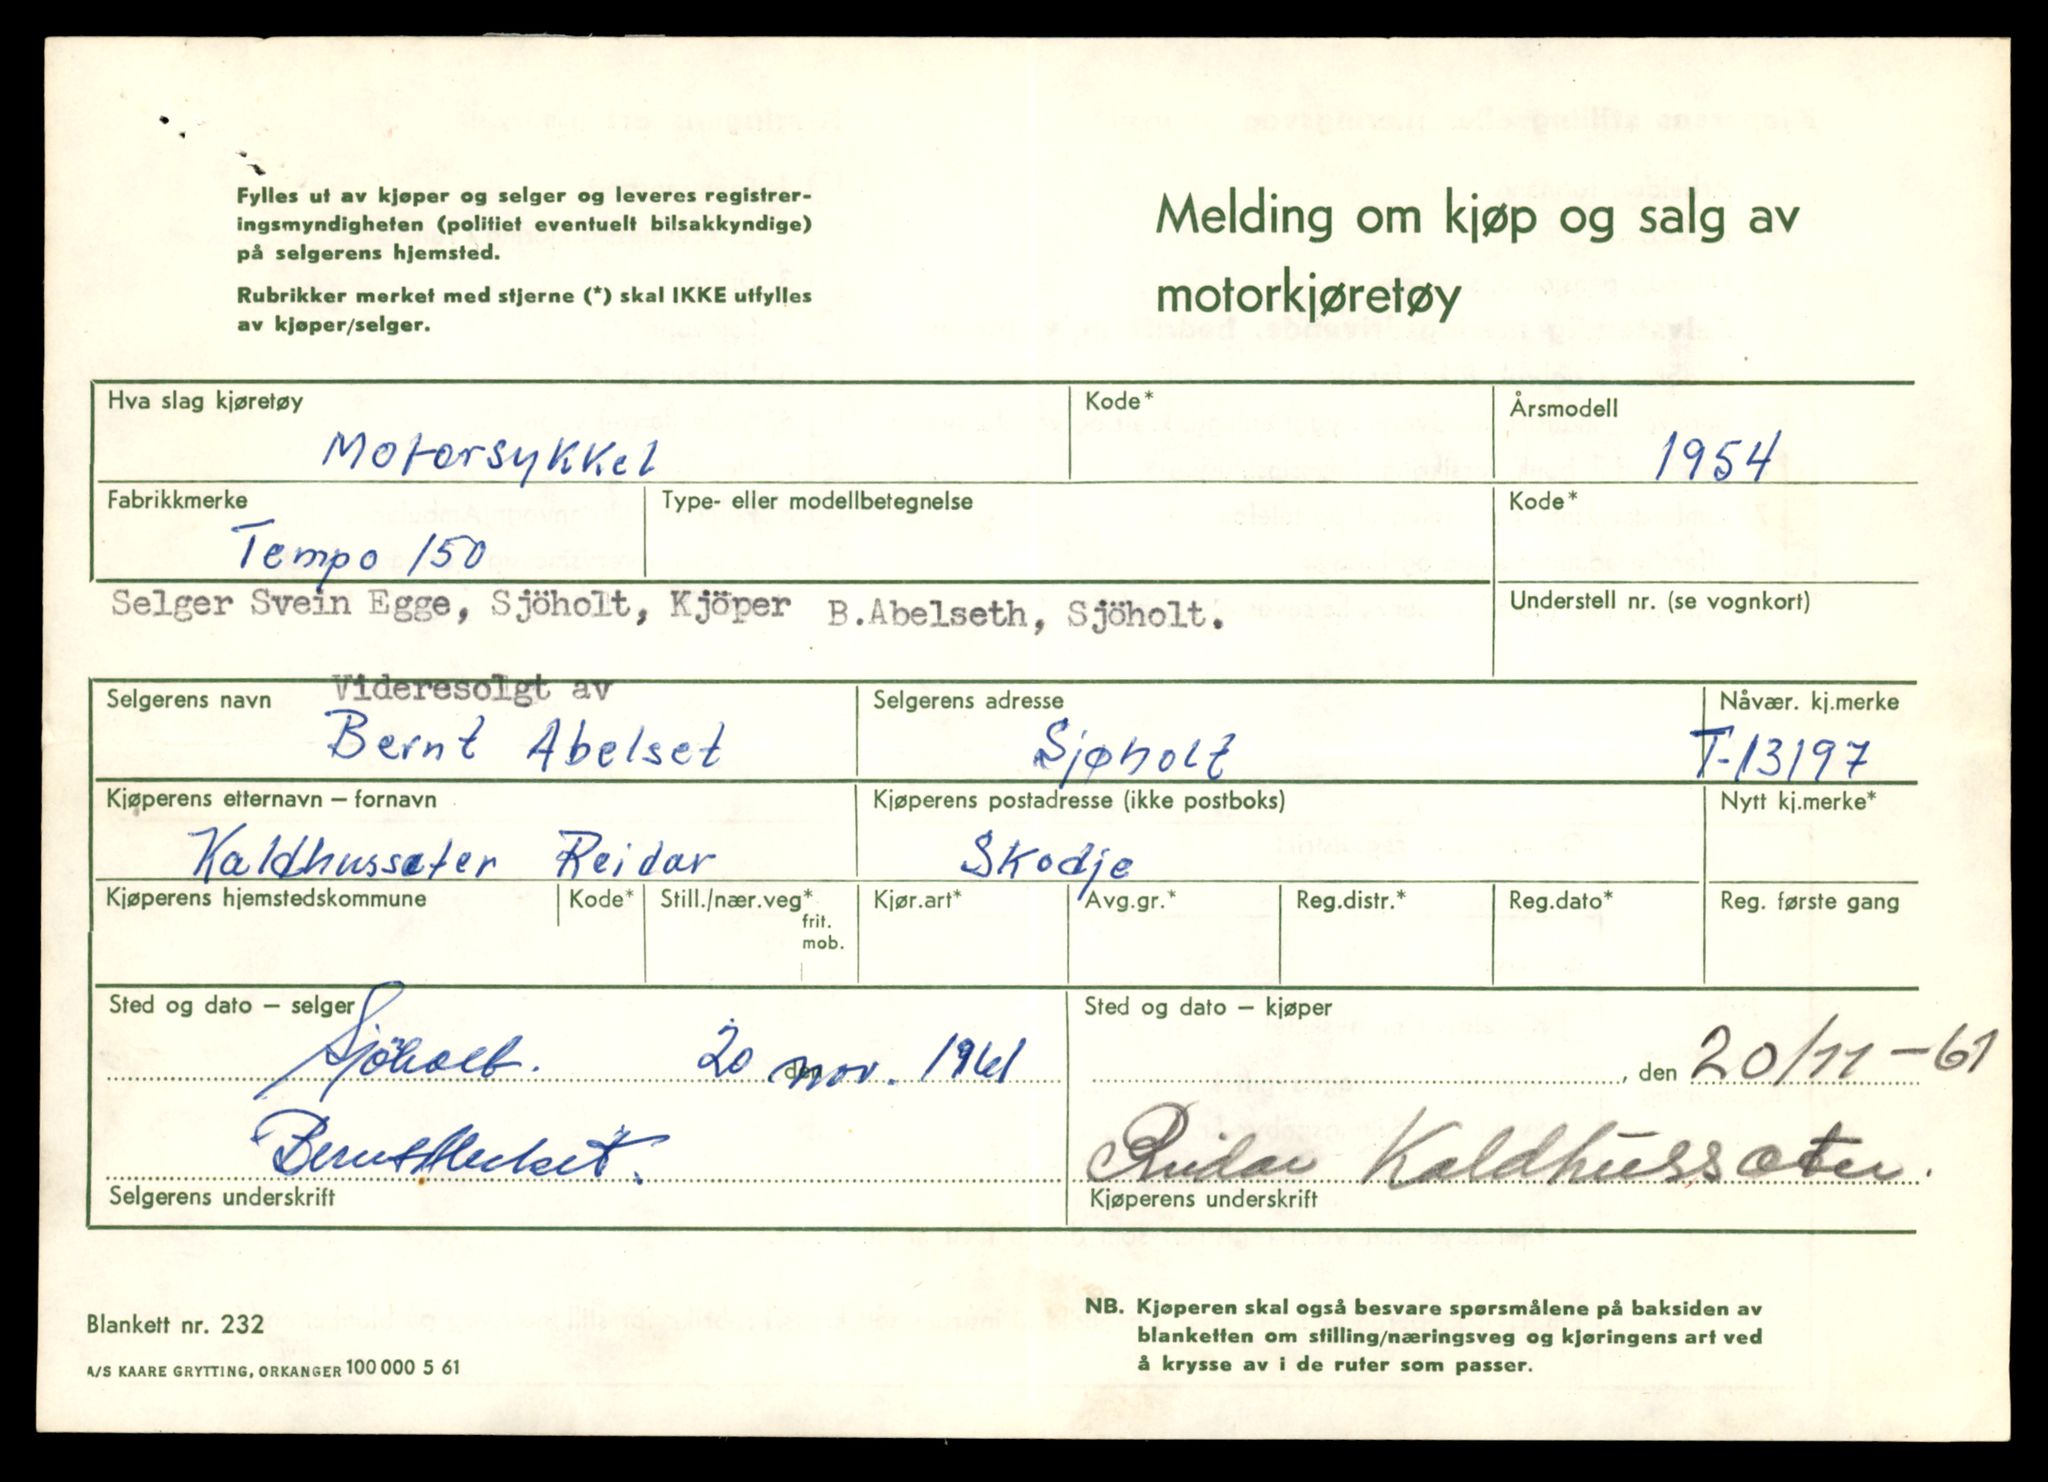 Fylles ut av kjøper og selger og leveres registrer-
ingsmyndigheten (politiet eventuelt bilsakkyndige)
på selgerens hjemsted.
Rubrikker merket med stjerne (*) skal IKKE utfylles
av kjøper/selger.
Melding om kjøp og salg av
motorkjøretøy
Hva slag kjøretøy
Motorsykkel
Kode*
Årsmodell
1954
Fabrikkmerke
Tempo 150
Type- eller modellbetegnelse
Kode*
Selger Svein Egge, Sjöholt, Kjöper B.Abelseth, Sjöholt.
Understell nr. (se vognkort)
Videresolgt av
Selgerens navn
Bernt Abelset
Selgerens adresse
Sjøholt
Nåvær. kj.merke
T-13197
Kjøperens etternavn – fornavn
Kaldhussæter Reidar
Kjøperens postadresse (ikke postboks)
Skodje
Nytt kj.merke*
Kjøperens hjemstedskommune
Kode*
Still./nær.veg*
frit.
mob.
Kjør.art*
Avg.gr.*
Reg.distr.*
Reg.dato*
Reg. første gang
Sted og dato – selger
Sjöholt. den 20 nov. 1961
Bernt Abelset.
Selgerens underskrift
Sted og dato – kjøper
, den 20/11-61
Reidar Kaldhussæter.
Kjøperens underskrift
Blankett nr. 232
A/S KAARE GRYTTING, ORKANGER 100 000 5 61
NB. Kjøperen skal også besvare spørsmålene på baksiden av
blanketten om stilling/næringsveg og kjøringens art ved
å krysse av i de ruter som passer.